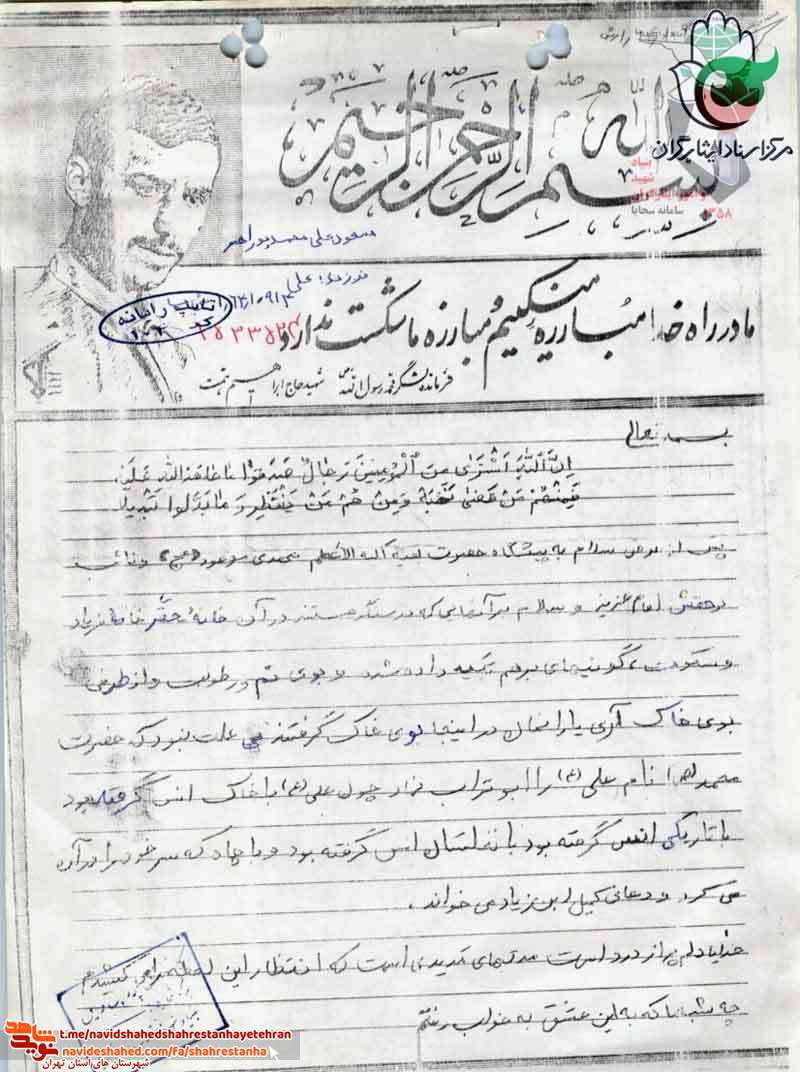 بسم الله الرحمن الرحیم
مرکز اسناد ایثارگران
بنیاد
شهید
و امور ایثارگران
سامانه سجایا
۱۳۵۸
مسعود علی محمد پور اهر
فرزند: علی
ما در راه خدا مبارزه میکنیم و مبارزه ما شکست ندارد
فرمانده لشگر محمد رسول الله (ص) شهید حاج ابراهیم همت
بسمه تعالی
ان الله اشتری من المؤمنین رجال صدقوا ما عاهدالله علیه
فمنهم من قضی نحبه و من هم من ینتظر و ما بدلوا تبدیلا
پس از عرض سلام به پیشگاه حضرت بقیه الله الاعظم مهدی موعود (عج) و نائب
برحقش امام عزیز و سلام بر آنهایی که در سنگر هستند در آن خانهٔ حقیر
و سکوت، گونیهای برهم تکیه داده شده و بوی نم و رطوبت و از طرفی
بوی خاک آری یارانمان در اینجا بوی خاک گرفتند بی علت نبود که حضرت
محمد (ص) نام علی (ع) را ابوتراب نهاد چون علی (ع) با خاک انس گرفته بود
با تاریکی انس گرفته بود با نخلستان انس گرفته بود و با چاه که سر خود را در آن
می کرد و دعای کمیل ابن زیاد می خواند.
خدایا دلم پر از درد است مدتهای مدیدی است که انتظار این لحظه را می کشیدم
چه شبها که به این عشق به خواب رفتم
نوید شاهد
t.me/navidshahedshahrestanhayetehran
navideshahed.com/fa/shahrestanha
شهرستان های استان تهران